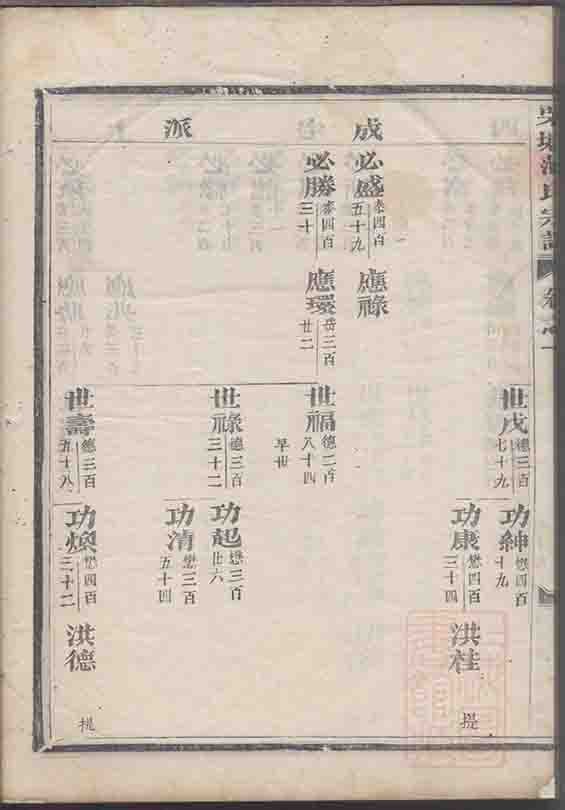 成派
世茂
德三百七十九
功紳
懋四百十九
功康
懋四百三十四
洪桂
提
必盛
泰四百五十九
應祿
必勝
泰四百三十
應環
岳三百廿二
世福
德二百八十四
早世
世祿
德三百三十二
功起
懋三百廿六
功清
懋三百五十四
世壽
德三百五十八
功煥
懋四百三十二
洪德
提